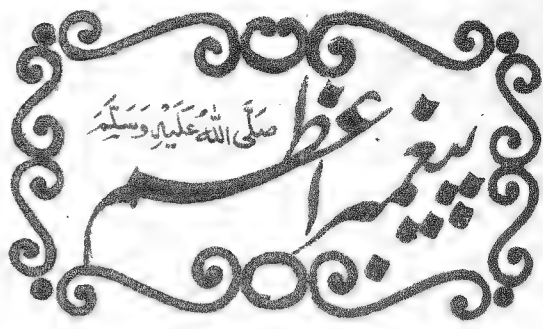 پیغمبر اعظم
صَلَّی اللّٰهُ عَلَیْهِ وَسَلَّمَ